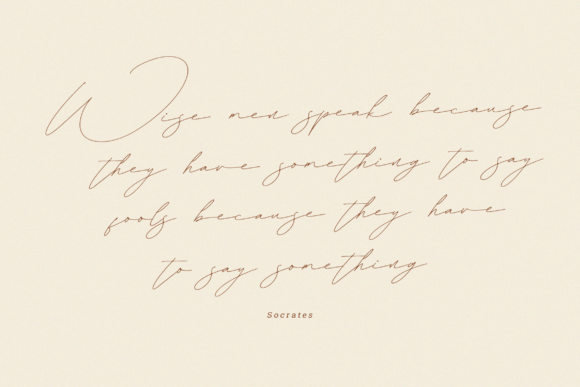 Wise men speak because
they have something to say
fools because they have
to say something
Socrates